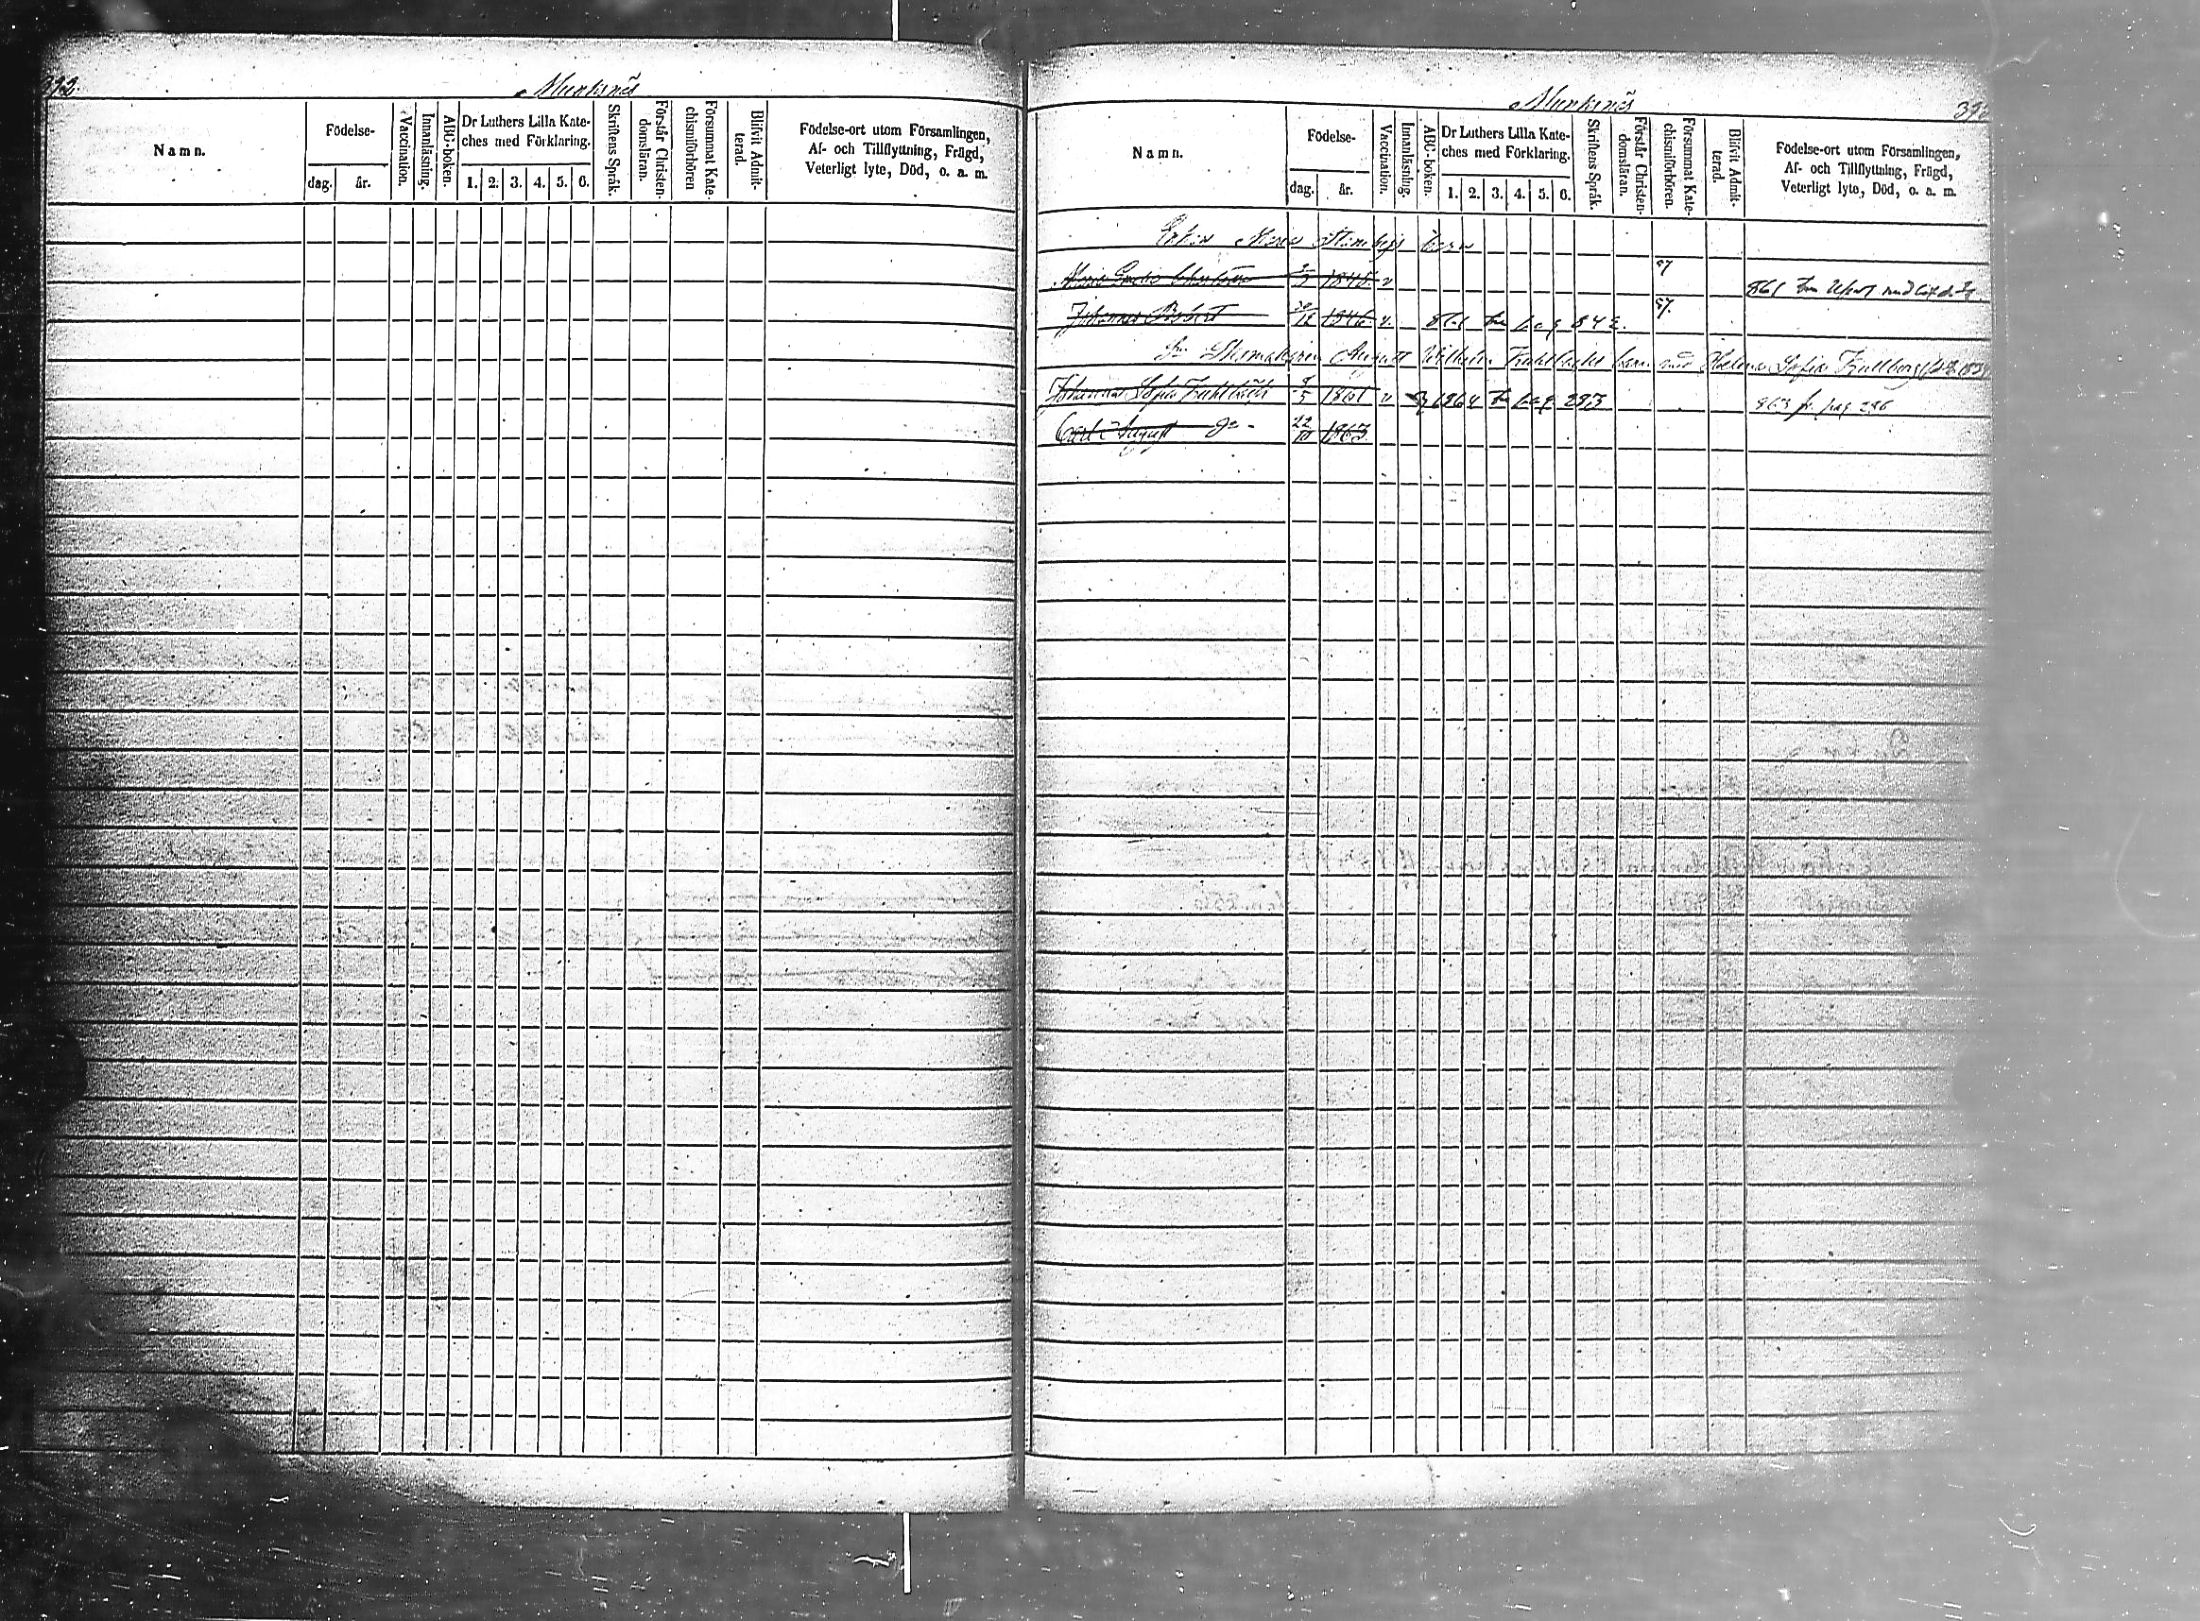 392.
Munksnäs
Namn.
Födelse-
dag. år.
Vaccination.
Innanläsning.
ABC-boken.
Dr Luthers Lilla Kate-
ches med Förklaring.
1. 2. 3. 4. 5. 6.
Skriftens Språk.
Förstår Christen-
domsläran.
Försummat Kate-
chismiförhören
Blifvit Admit-
terad.
Födelse-ort utom Församlingen,
Af- och Tillflyttning, Frägd,
Veterligt lyte, Död, o. a. m.
Munksnäs
39
Namn.
Födelse-
dag. år.
Vaccination.
Innanläsning.
ABC-boken.
Dr Luthers Lilla Kate-
ches med Förklaring.
1. 2. 3. 4. 5. 6.
Skriftens Språk.
Förstår Christen-
domsläran.
Försummat Kate-
chismiförhören.
Blifvit Admit-
terad.
Födelse-ort utom Församlingen,
Af- och Tillflyttning, Frägd,
Veterligt lyte, Död, o. a. m.
Enkin Maria barn
Maria 1845 v 57 861
Johannes Robert 30/12 1846 v. 861 pag 842. 57.
August Wilhelm barn med Helena Sofia Kullberg
Johanna Sofia 1861 v 1864 pag 283 863 fr. pag 286
Carl August Do - 22/10 1863